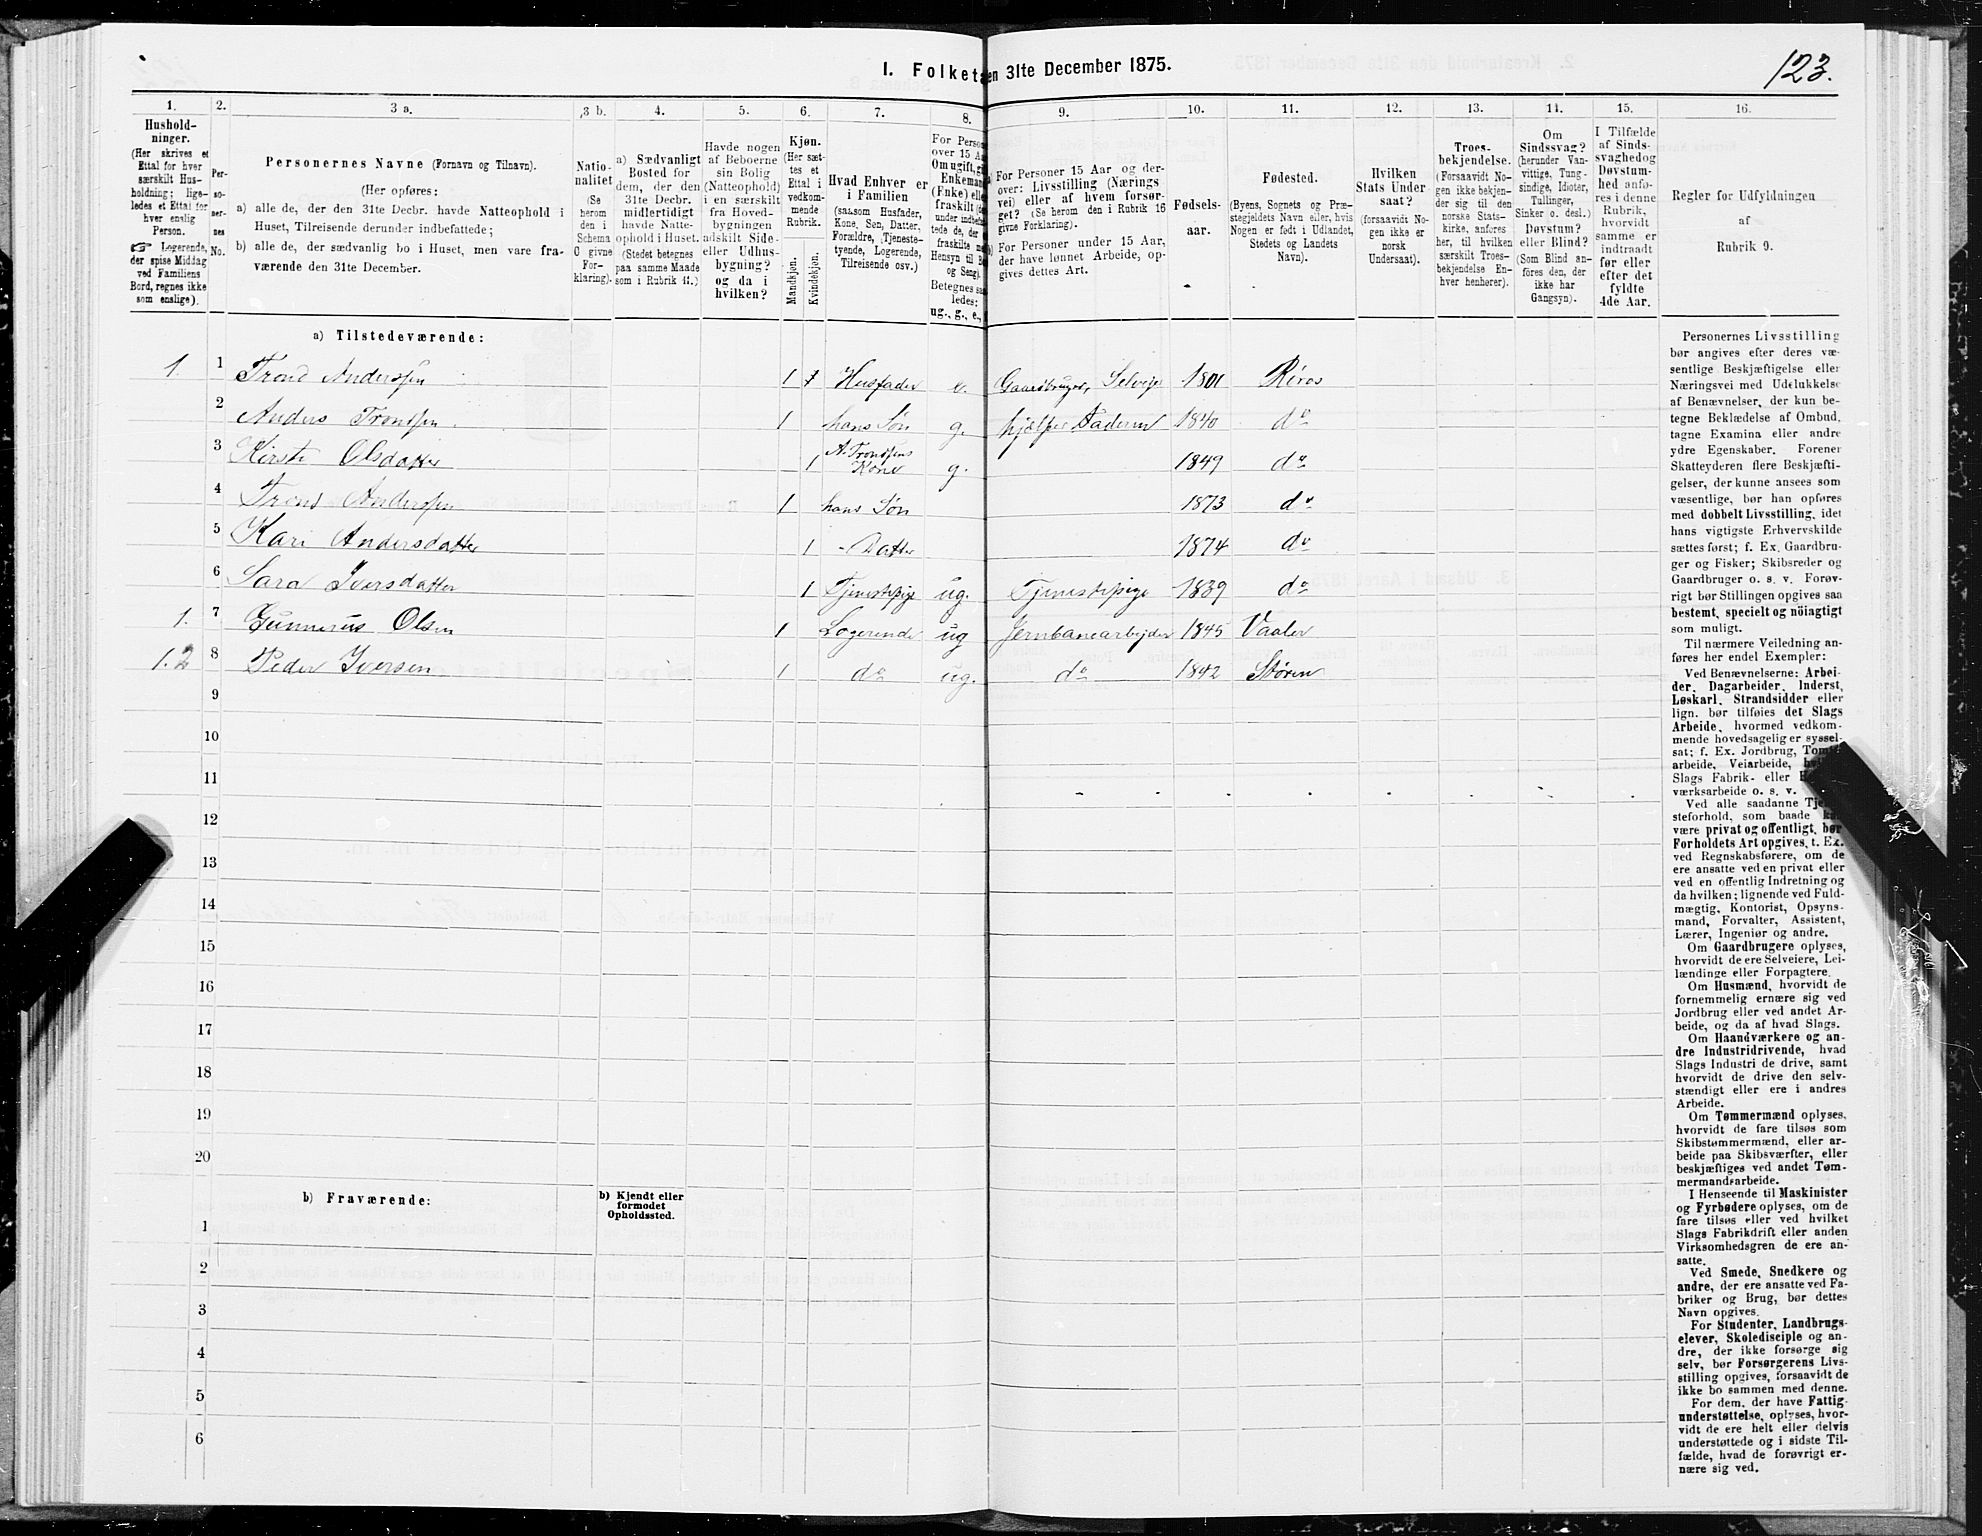 I. Folketæ en 31te December 1875.
123.
1. 2. 3 a. 3 b. 4. 5. 6. 7. 8. 9. 10. 11. 12. 13. 14. 15. 16.
Hushold-
ninger.
(Her skrives et
Ettal for hver
særskilt Hus-
holdning; lige-
ledes et Ettal for
hver enslig
Person.
☞ Logerende,
der spise Middag
ved Familiens
Bord, regnes ikke
som enslige).
Per-
so-
ner-
nes
No.
Personernes Navne (Fornavn og Tilnavn).
(Her opføres:
a) alle de, der den 31te Decbr. havde Natteophold i
Huset, Tilreisende derunder indbefattede;
b) alle de, der sædvanlig bo i Huset, men vare fra-
værende den 31te December.
Natio-
nalitet
(Se
herom
den i
Schema
O givne
For-
klaring).
a) Sædvanligt
Bosted for
dem, der den
31te Decbr.
midlertidigt
havde Natte-
ophold i Huset.
(Stedet betegnes
paa samme Maade
som i Rubrik 11.)
Havde nogen
af Beboerne
sin Bolig
(Natteophold)
i en særskilt
fra Hoved-
bygningen
adskilt Side-
eller Udhus-
bygning?
og da i
hvilken?
Kjøn.
(Her sæt-
tes et
Ettal i
vedkom-
mende
Rubrik.
Mandkjøn.
Kvindekjøn.
Hvad Enhver er
i Familien
(saasom Husfader,
Kone, Søn, Datter,
Forældre, Tjeneste-
tyende, Logerende,
Tilreisende osv.)
For Perso
over 15 Aa
Omugift, gi
Enkeman
(Enke) elle
fraskilt (d
under indbef
tede de, der
fraskilte m
Hensyn til B
og Seng).
Betegnes saa
ledes:
ug., g., e.,
a) For Personer 15 Aar og der-
over: Livsstilling (Nærings-
vei) eller af hvem forsør-
get? (Se herom den i Rubrik 16
givne Forklaring).
b) For Personer under 15 Aar,
der have lønnet Arbeide, op-
gives dettes Art.
Fødsels-
aar.
Fødested.
(Byens, Sognets og Præ-
stegjeldets Navn eller, hvis
Nogen er født i Udlandet,
Stedets og Landets
Navn).
Hvilken
Stats Under-
saat?
(forsaavidt No-
gen ikke er
norsk
Undersaat).
Troes-
bekjendelse.
(Forsaavidt No-
gen ikke bekjen-
der sig til den
norske Stats-
kirke, anføres
her, til hvilken
særskilt Troes-
bekjendelse En-
hver henhører).
Om
Sindssvag?
(herunder Van-
vittige, Tung-
sindige, Idioter,
Tullinger,
Sinker o. desl.)
Døvstum?
eller Blind?
(Som Blind an-
føres den, der
ikke har
Gangsyn).
I Tilfælde
af Sinds-
svaghedog
Døvstum-
hed anfø-
res i denne
Rubrik,
hvorvidt
samme er
indtraadt
før eller
efter det
fyldte
4de Aar.
Regler for Udfyldningen
af
Rubrik 9.
a) Tilstedeværende:
1. 1 Trond Anderssen 1 Husfader e. Gaardbruger, Selveje 1801 Røros
2 Anders Trondsen 1 hans Søn g. hjælper Faderen 1840 do
3 Kirsti Olsdatter 1 A. Trondsens Kone g. 1849 do
4 Trond Anderssen 1 hans Søn 1873 do
5 Kari Andersdatter 1 - Datter 1874 do
6 Sara Iversdatter 1 Tjenestepige ug. Tjenestepige 1839 do
1. 7 Gunnerus Olsen 1 Logerende ug Jernbanearbejder 1845 Vaaler
1. 2 8 Peder Iversen 1 do ug. do 1842 Støren
9
10
11
12
13
14
15
16
17
18
19
20
b) Fraværende:
b) Kjendt eller
formodet
Opholdssted.
1
2
3
4
5
6
Personernes Livsstilling
bør angives efter deres væ-
sentlige Beskjæftigelse eller
Næringsvei med Udelukkelse
af Benævnelser, der kun be-
tegne Beklædelse af Ombud,
tagne Examina eller andre
ydre Egenskaber. Forener
Skatteyderen flere Beskjæfti-
gelser, der kunne ansees som
væsentlige, bør han opføres
med dobbelt Livsstilling, idet
hans vigtigste Erhvervskilde
sættes først; f. Ex. Gaardbru-
ger og Fisker; Skibsreder og
Gaardbruger o. s. v. Forøv-
rigt bør Stillingen opgives saa
bestemt, specielt og nöiagtigt
som muligt.
Til nærmere Veiledning an-
føres her endel Exempler:
Ved Benævnelserne: Arbei-
der, Dagarbeider, Inderst,
Løskarl, Strandsidder eller
lign. bør tilføies det Slags
Arbeide, hvormed vedkom-
mende hovedsagelig er syssel-
sat; f. Ex. Jordbrug, Tomt
arbeide, Veiarbeide,
Slags Fabrik- eller
værksarbeide o. s. v.
Ved alle saadanne Tje
steforhold, som baade
være privat og offentligt, bør
Forholdets Art opgives, t. Ex.
ved Regnskabsførere, om de
ere ansatte ved en privat eller
ved en offentlig Indretning og
da hvilken; lignende ved Fuld-
mægtig, Kontorist, Opsyns-
mand, Forvalter, Assistent,
Lærer, Ingeniør og andre.
Om Gaardbrugere oplyses,
hvorvidt de ere Selveiere, Lei-
lændinge eller Forpagtere.
Om Husmænd, hvorvidt de
fornemmelig ernære sig ved
Jordbrug eller ved andet Ar-
beide, og da af hvad Slags.
Om Haandværkere og an-
dre Industridrivende, hvad
Slags Industri de drive, samt
hvorvidt de drive den selv-
stændigt eller ere i andres
Arbeide.
Om Tømmermænd oplyses,
hvorvidt de fare tilsøs som
Skibstømmermænd, eller ar-
beide paa Skibsværfter, eller
beskjæftiges ved andet Tøm-
mermandsarbeide.
I Henseende til Maskinister
og Fyrbødere oplyses, om de
fare tilsøs eller ved hvilket
Slags Fabrikdrift eller anden
Virksomhedsgren de ere an-
satte.
Ved Smede, Snedkere og
andre, der ere ansatte ved Fa-
briker og Brug, bør dettes
Navn opgives.
For Studenter, Landbrugs-
elever, Skoledisciple og an-
dre, der ikke forsørge sig
selv, bør Forsørgerens Livs-
stilling opgives, forsaavidt de
ikke bo sammen med denne.
For dem, der have Fattig-
understøttelse, oplyses, hvor-
vidt de ere helt eller delvis
understøttede og i sidste Til-
fælde, hvad de forøvrigt er-
nære sig ved.